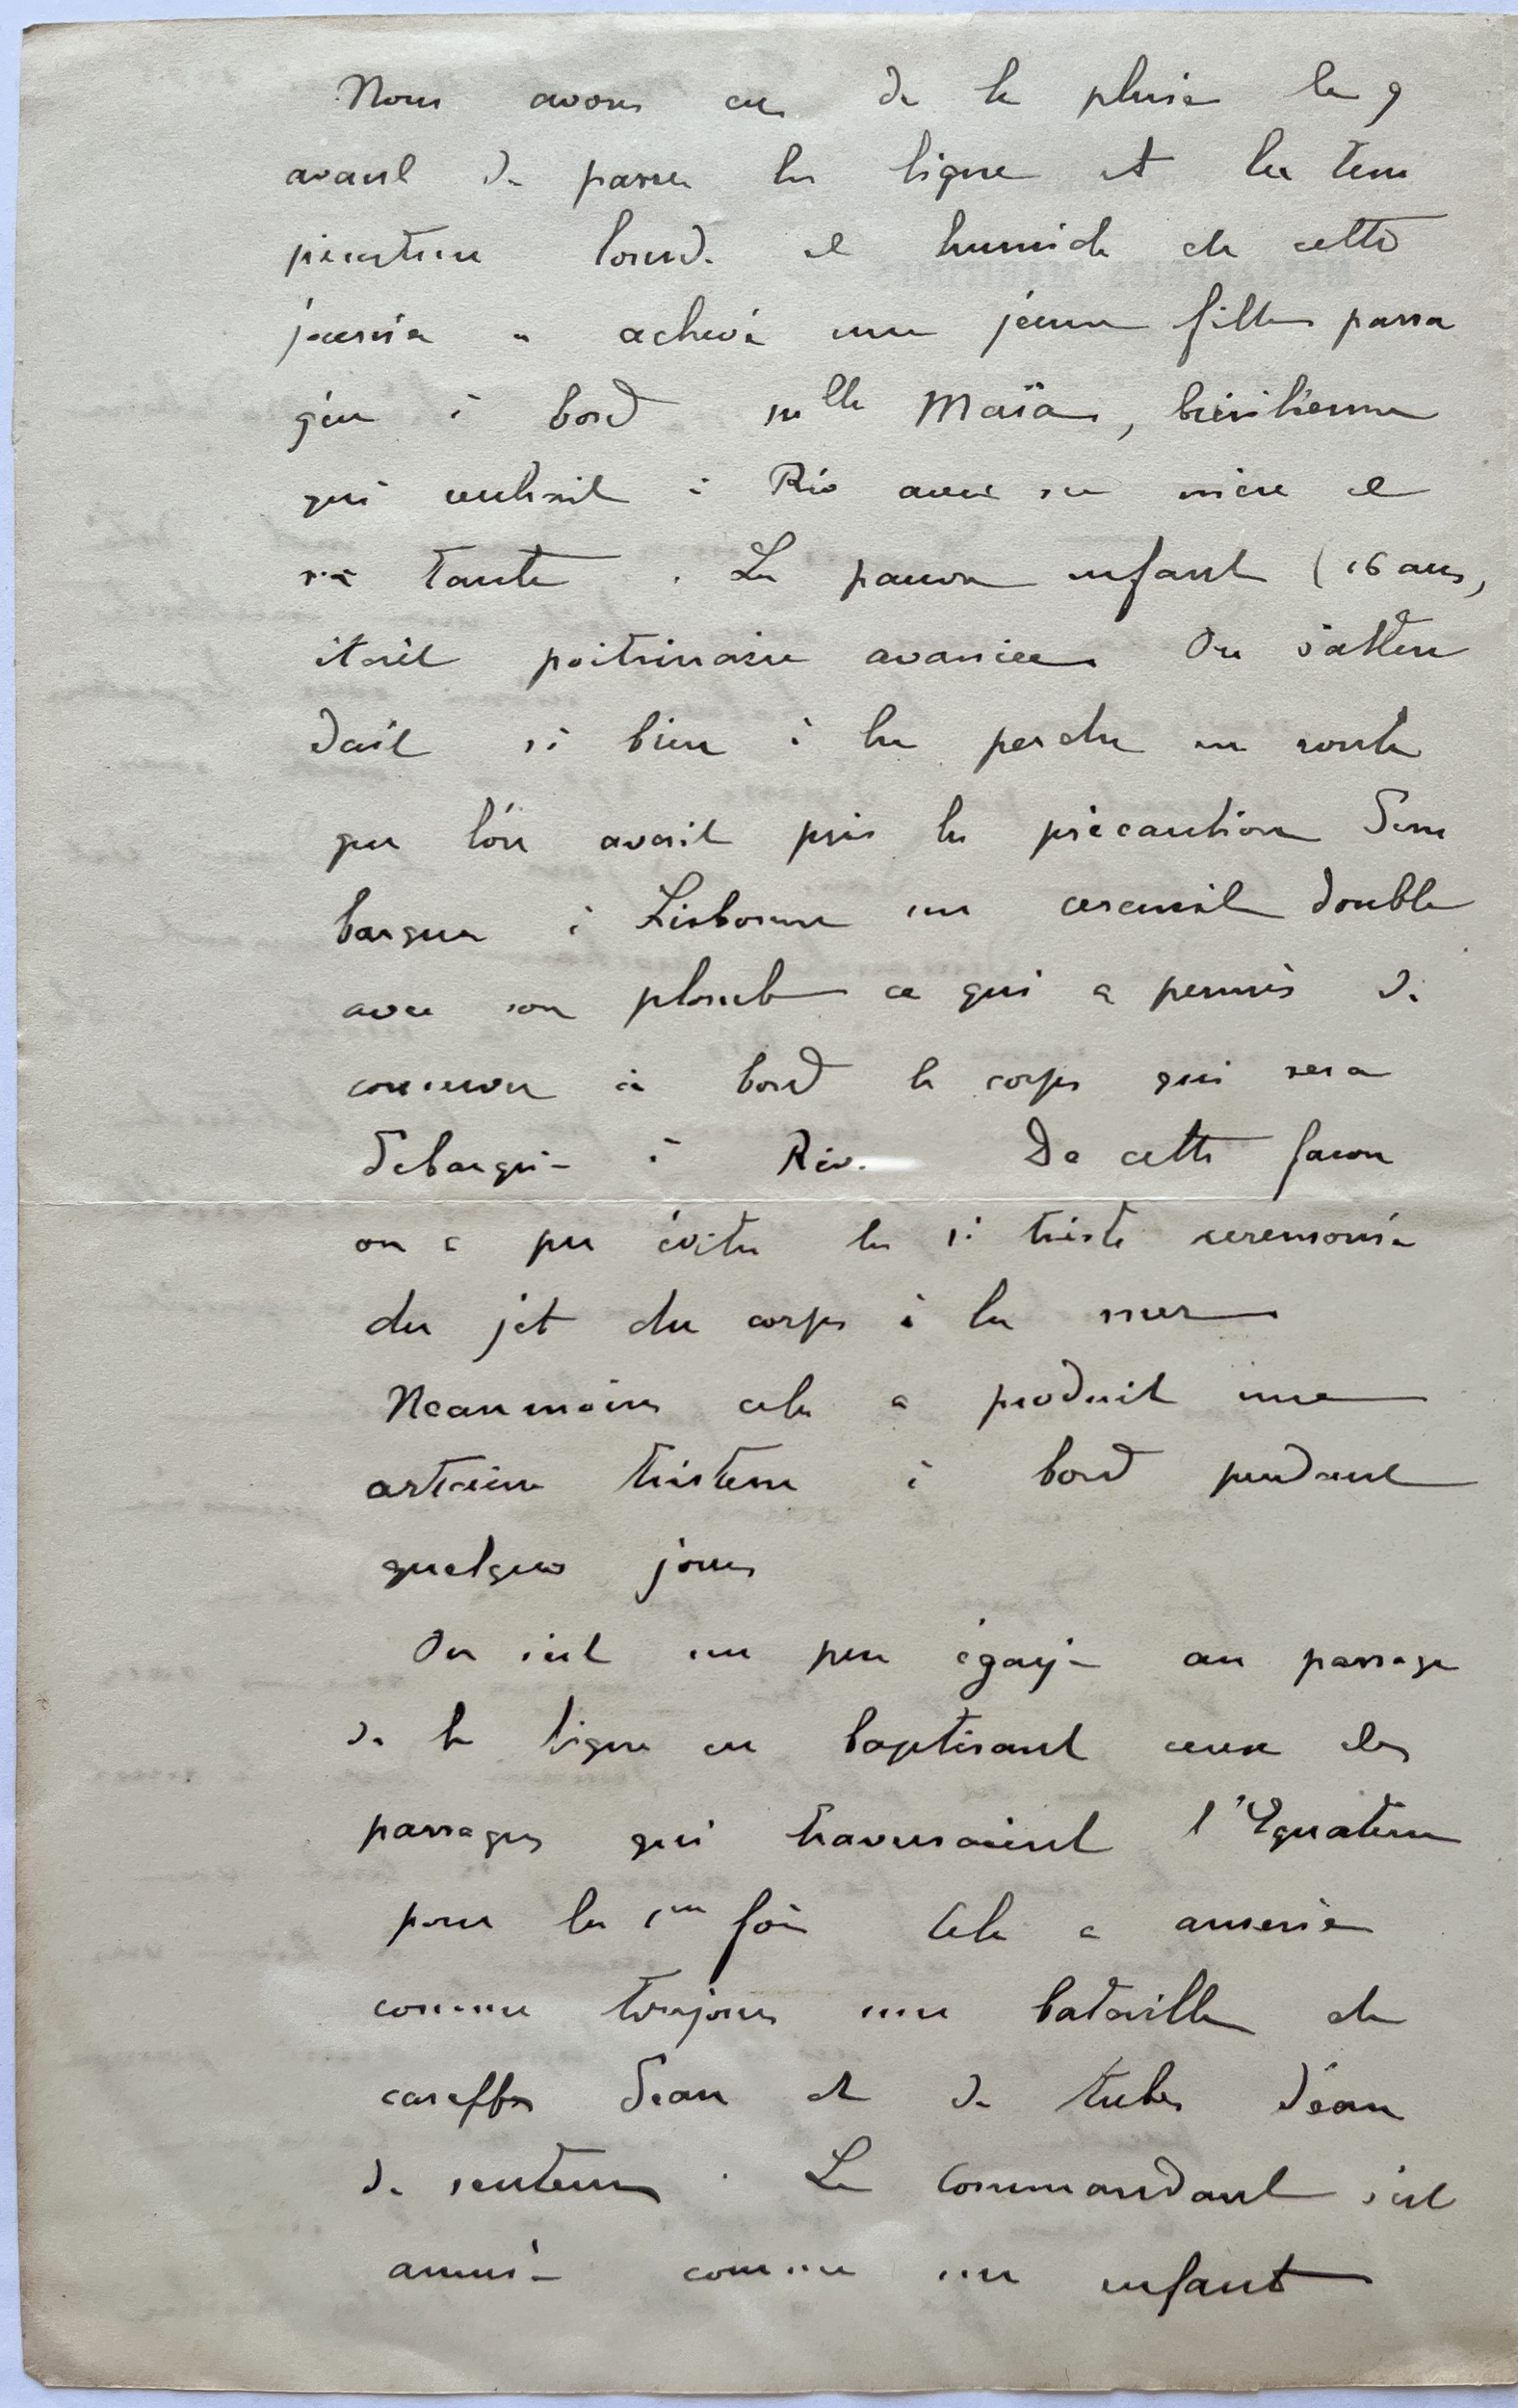 Nous avons eu de la pluie le 9
avant de passer la ligne et la tem
pérature lourde et humide de cette
journée a achevé une jeune fille passa
gère à bord Mlle Maïa, brésilienne
qui rentrait à Rio avec sa mère et
sa tante. La pauvre enfant (16 ans,
était poitrinaire avancée On s'atten
dait si bien à la perdre en route
que l'on avait pris la précaution d'em
barquer à Lisbonne un cercueil double
avec son plomb ce qui a permis de
conserver à bord le corps qui sera
debarqué à Rio. De cette facon
on a pu éviter la si triste ceremonie
du jet du corps à la mer
Neanmoins cela a produit une
certaine tristesse à bord pendant
quelques jours
On s'est un peu égayé au passage
de la ligne en baptisant ceux des
passagers qui traversaient l'Equateur
pour la 1ere fois Cela a amené
comme toujours une bataille de
caraffes d'eau et de tubes d'eau
de senteur. Le Commandant s'est
amusé comme un enfant